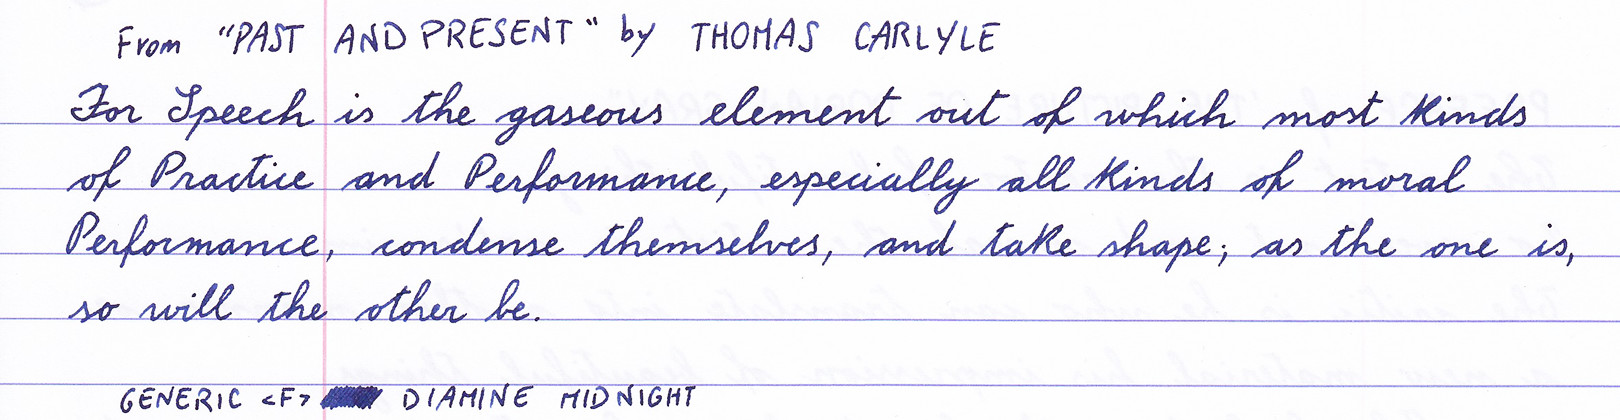 From "PAST AND PRESENT" by THOMAS CARLYLE
For Speech is the gaseous element out of which most kinds
of Practice and Performance, especially all kinds of moral
Performance, condense themselves, and take shape; as the one is,
so will the other be.
GENERIC <F> DIAMINE MIDNIGHT